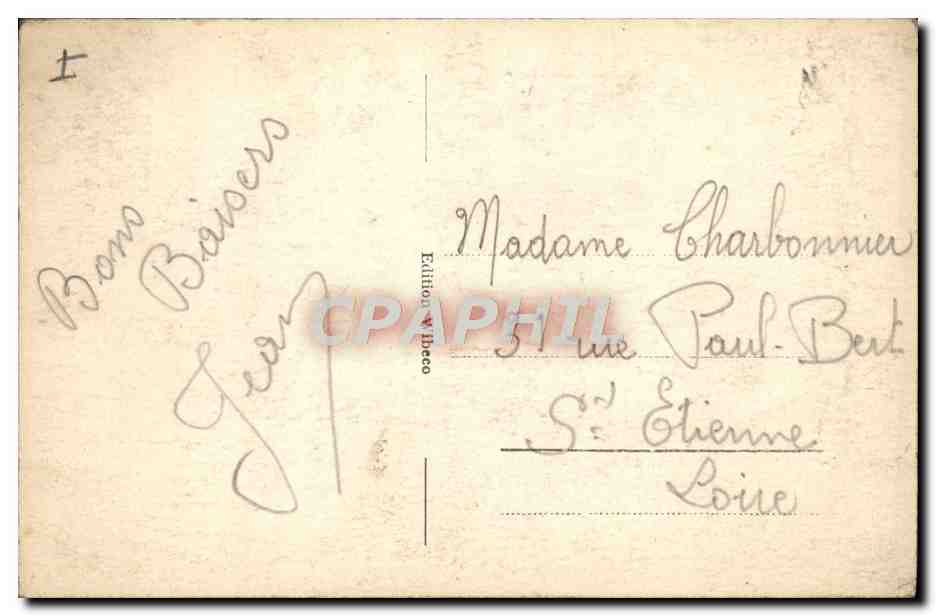 Bons
Baisers
Jean
Edition Wibeco
CPAPHIL
Madame Charbonnier
51 rue Paul-Bert
St Etienne
Loire